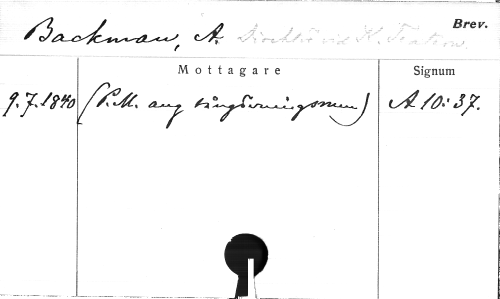 Brev.
Backman, A. Direktör vid K. Teatern.
Mottagare Signum
9.7.1840 (P.M. ang sångövningsrum) A 10:37.